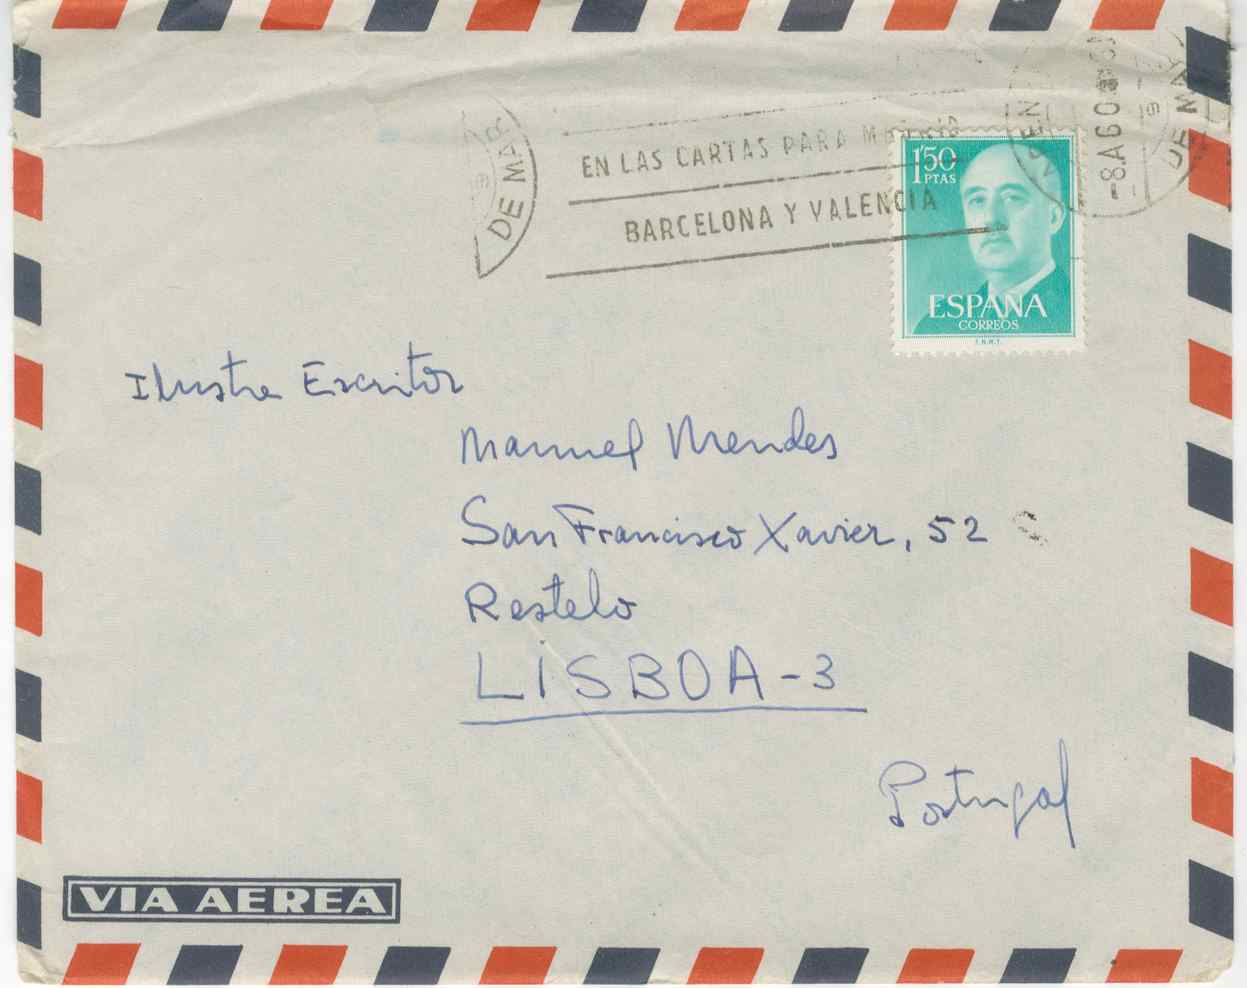 EN LAS CARTAS PARA MADRID
BARCELONA Y VALENCIA
DE MAR
-8.A60
DE MAR
1'50
PTAS
ESPAÑA
CORREOS
F.N.M.T.
Ilustre Escritor
Manuel Mendes
San Francisco Xavier, 52
Restelo
LISBOA-3
Portugal
VIA AEREA